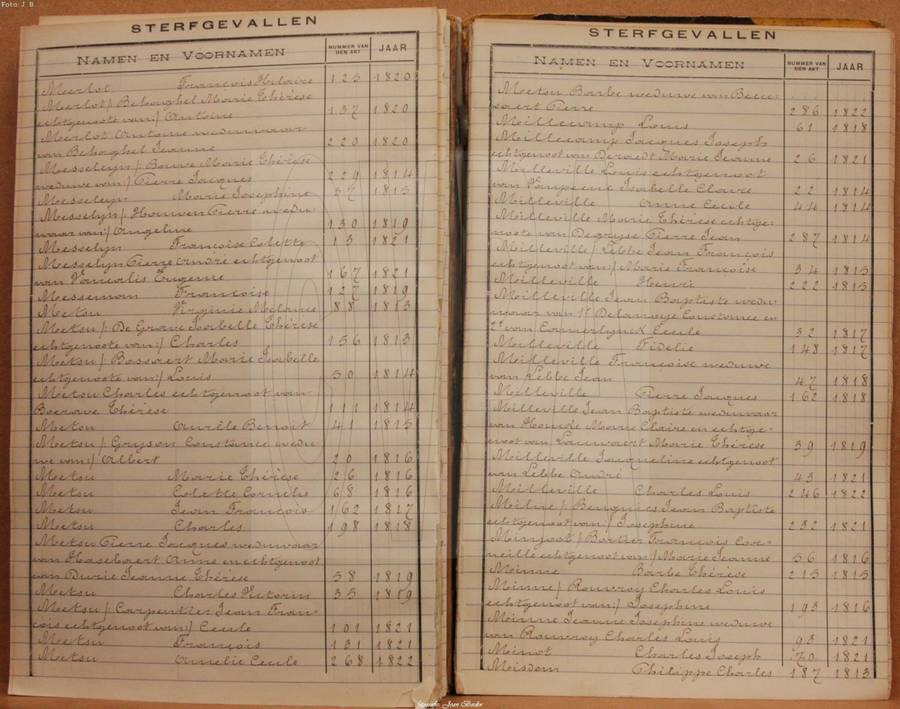 Foto: J. B.
STERFGEVALLEN
NAMEN EN VOORNAMEN NUMMER VAN DEN AKT JAAR
Merlot François Hilaire 125 1820
Merlot / Behaghel Marie Thérèse
echtgenote van / Antoine 137 1820
Merlot Antoine weduwaar
van Behaghel Jeanne 220 1820
Messelyn / Bouve Marie Thérèse
weduwe van / Pierre Jacques 229 1814
Messelyn Marie Josephine 37 1815
Messelyn / Houwen Pierre wedu-
waar van / Angeline 130 1819
Messelyn Françoise Colette 13 1821
Messelyn Pierre André echtgenoot
van Eugenie 167 1821
Messeman Françoise 127 1819
Metsu Virginie Melanie 88 1813
Metsu / De Grave Isabelle Thérèse
echtgenoote van / Charles 156 1813
Metsu / Bossaert Marie Isabelle
echtgenoote van / Louis 50 1814
Metsu Charles echtgenoot van
Boerave Thérèse 111 1814
Metsu Aurèle Benoit 41 1815
Metsu / Gryson Constance wedu-
we van / Albert 20 1816
Metsu Marie Thérèse 26 1816
Metsu Colette Cornélie 68 1816
Metsu Jean François 162 1817
Metsu Charles 198 1818
Metsu Pierre Jacques weduwaar
van Hasebaert Anne en echtgenoot
van Durie Jeanne Thérèse 58 1819
Metsu Charles 35 1819
Metsu / Carpentier Jean Fran-
cois echtgenoot van / Cecile 101 1821
Metsu François 131 1821
Metsu Amelie Cecile 268 1822
STERFGEVALLEN
NAMEN EN VOORNAMEN NUMMER VAN DEN AKT JAAR
Metsu Barbe weduwe van Beeu-
saert Pierre 286 1822
Meillecamp Louis 61 1818
Meillecamp Jacques Joseph
echtgenoot van Deraedt Marie Jeanne 26 1821
Milleville Louis echtgenoot
van Isabelle Claire 22 1814
Milleville Anne Cecile 44 1814
Milleville Marie Thérèse echtge-
noote van Degryse Pierre Jean 287 1814
Milleville / Lebbe Jean François
echtgenoot van / Marie Françoise 34 1815
Milleville Henri 222 1815
Milleville Jean Baptiste wedu-
waar van 1e Delannoye Constance en
2e van Cecile 32 1817
Milleville Fidelie 148 1817
Milleville Françoise weduwe
van Lebbe Jean 47 1818
Milleville Pierre Jacques 162 1818
Milleville Jean Baptiste weduwaar
van Marie Claire en echtge-
noot van Lauwaert Marie Thérèse 39 1819
Milleville Jacqueline echtgenoot
van Lebbe André 43 1821
Milleville Charles Louis 246 1822
Milne / Jean Baptiste
echtgenoot van / Josephine 232 1821
Minjoot / Bartier François Cor-
neille echtgenoot van / Marie Jeanne 56 1816
Minne Barbe Thérèse 215 1815
Minne / Rouvroy Charles Louis
echtgenoot van / Josephine 193 1816
Minne Jeanne Josephine weduwe
van Rouvroy Charles Louis 93 1821
Minot Charles Joseph 70 1821
Misdom Philippe Charles 187 1813